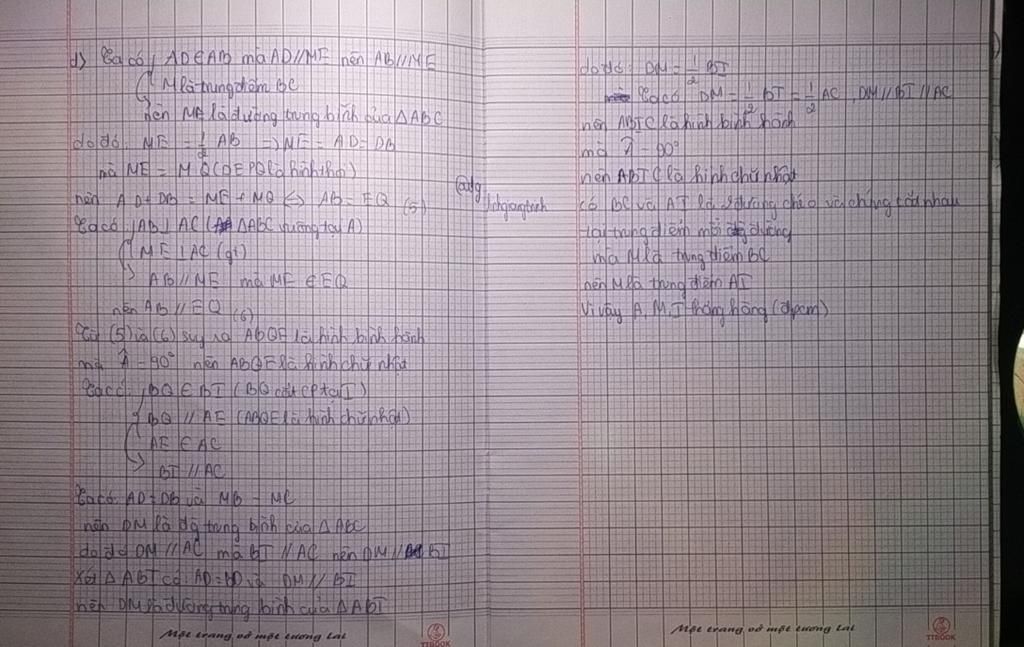 d) Ta có, AD∈AB mà AD//ME nên AB//ME
M là trung điểm BC
nên ME là đường trung bình của ΔABC
do đó: ME = 1/2 AB => ME = AD = DB
mà ME = MQ (DEPQ là hình thoi)
nên AD + DB = ME + MQ <=> AB = EQ (5)
Ta có AB ⊥ AC (ΔABC vuông tại A)
ME ⊥ AC (gt)
AB // ME mà ME ∈ EQ
nên AB // EQ (6)
Từ (5) và (6) suy ra ABQE là hình bình hành
mà Â = 90° nên ABQE là hình chữ nhật
Ta có: BQ ∈ BI (BQ cắt CP tại I)
BQ // AE (ABQE là hình chữ nhật)
AE ∈ AC
BI // AC
Ta có: AD = DB và MB = MC
nên DM là đg trung bình của ΔABC
do đó DM // AC mà BI // AC nên DM // BI
Xét ΔABI có AD = BD và DM // BI
nên DM là đường trung bình của ΔABI
do đó: DM = 1/2 BI
Ta có DM = 1/2 BI = 1/2 AC, DM // BI // AC
nên ABIC là hình bình hành
mà Â = 90°
nên ABIC là hình chữ nhật
có BC và AI là 2 đường chéo và chúng cắt nhau
tại trung điểm mỗi đường
mà M là trung điểm BC
nên M là trung điểm AI
Vì vậy A, M, I thẳng hàng (đpcm)
Một trang vở một tương lai
TTBOOK
Một trang vở một tương lai
TTBOOK